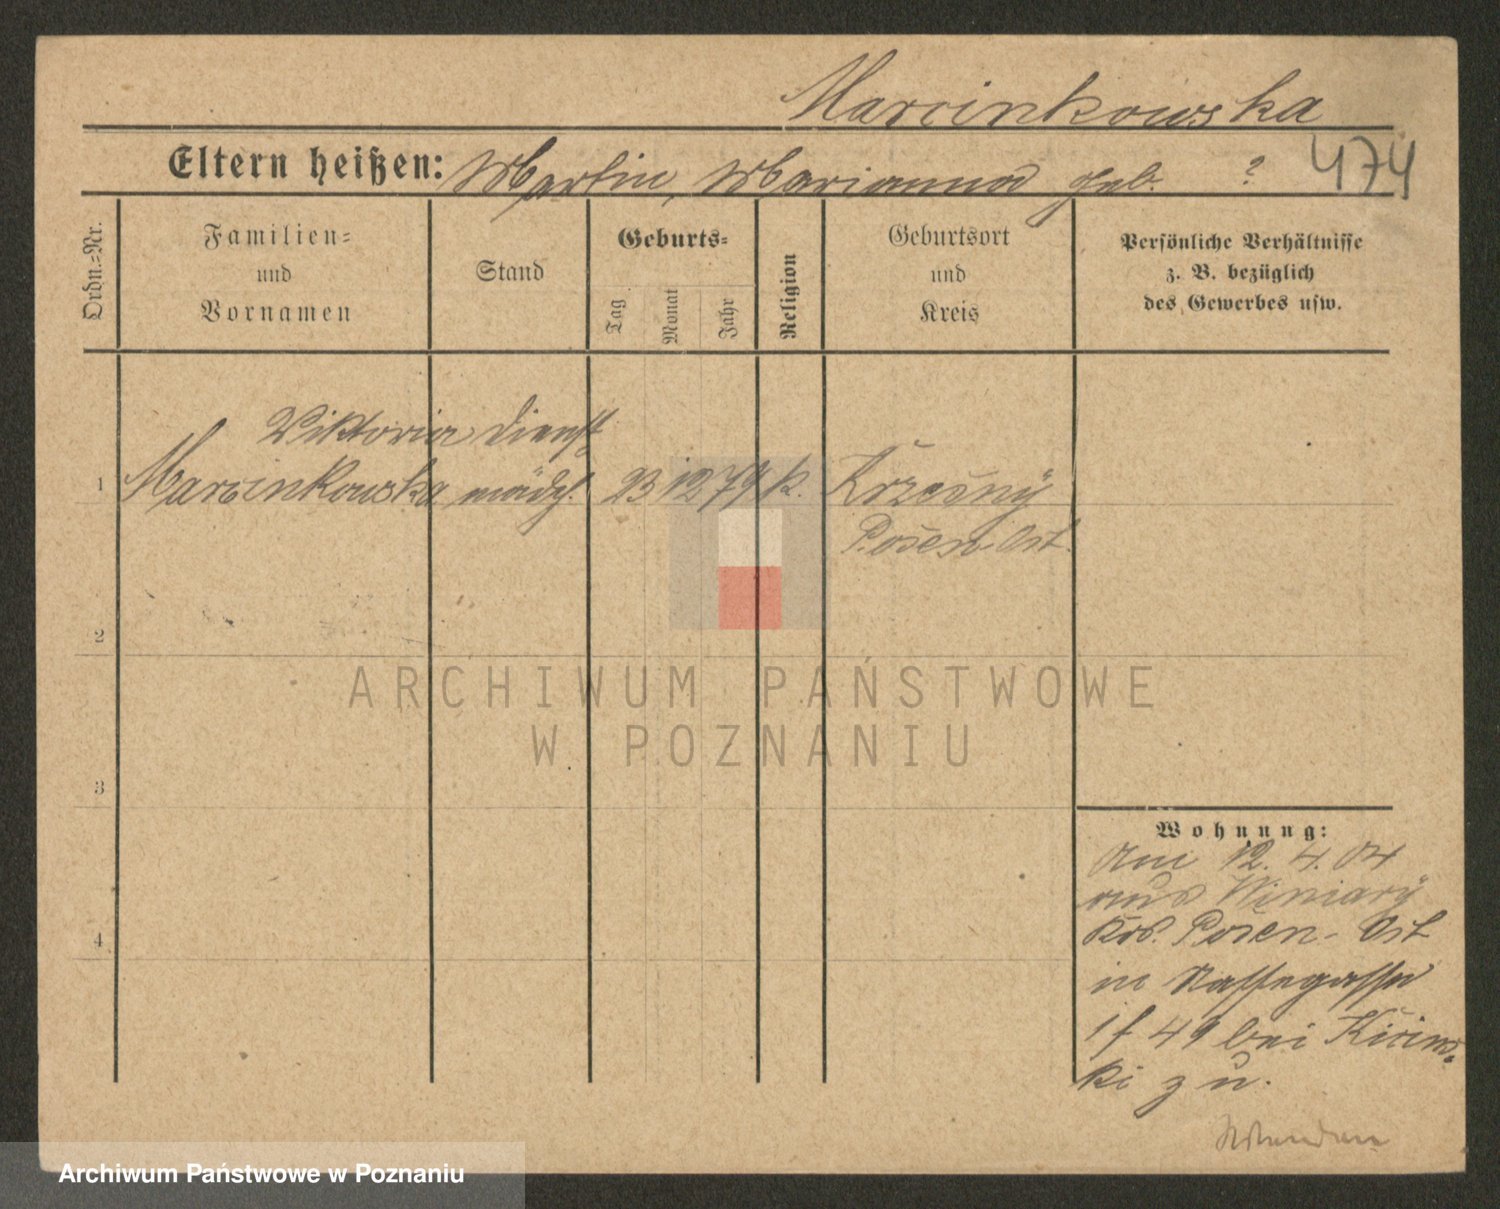 Marcinkowska
Eltern heißen: Martin, Marianna geb. ?
474
Ordn.-Nr.
Familien-
und
Vornamen
Stand
Geburts-
Tag
Monat
Jahr
Religion
Geburtsort
und
Kreis
Persönliche Verhältnisse
z. B. bezüglich
des Gewerbes usw.
Viktoria Dienst
1 Marcinkowska mädch. 23 12 79 k.
Posen-Ost.
2
ARCHIWUM PAŃSTWOWE
W POZNANIU
3
Wohnung:
Am 12. 4. 04
aus Winiary
Krs. Posen-Ost
4
in
49 bei
ki zu.
Archiwum Państwowe w Poznaniu